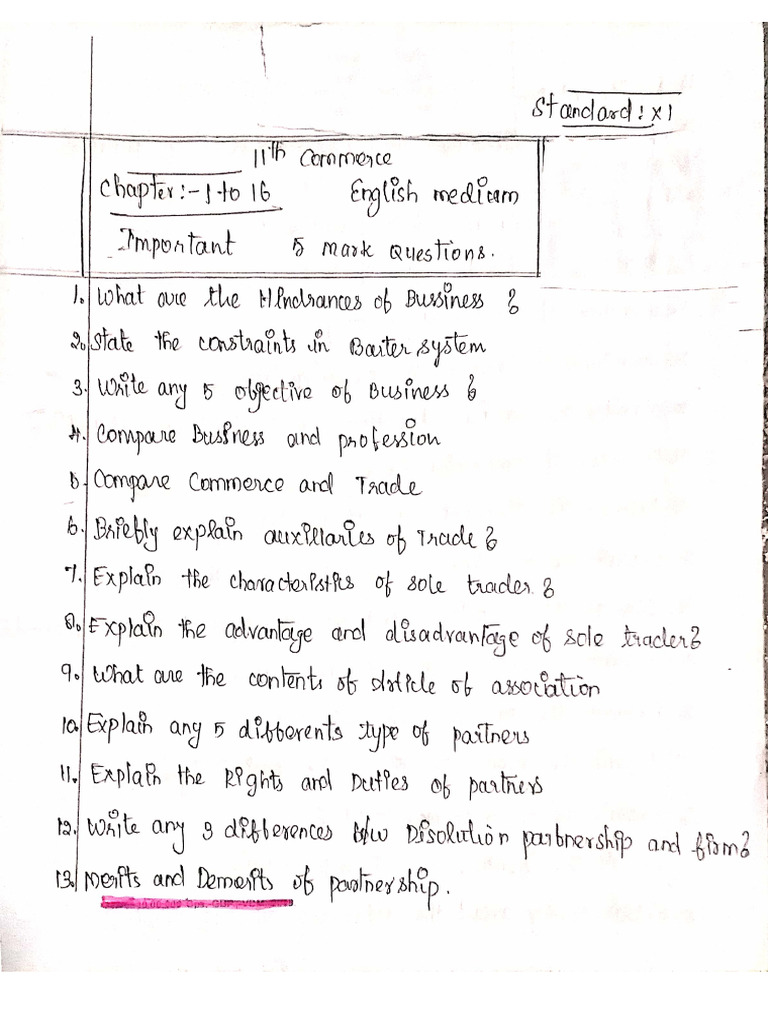 Standard: XI
11th Commerce
Chapter:- 1 to 16 English medium
Important 5 mark Questions.
1. What are the Hindrances of Bussiness ?
2. State the constraints in Barter system
3. Write any 5 objective of Business ?
4. Compare Business and profession
5. Compare Commerce and Trade
6. Briefly explain auxillaries of Trade ?
7. Explain the characteristics of sole trader ?
8. Explain the advantage and disadvantage of sole trader?
9. What are the contents of Article of association
10. Explain any 5 differents type of partners
11. Explain the Rights and Duties of partners
12. Write any 3 differences b/w Disolution partnership and firm?
13. Merits and Demerits of partnership.